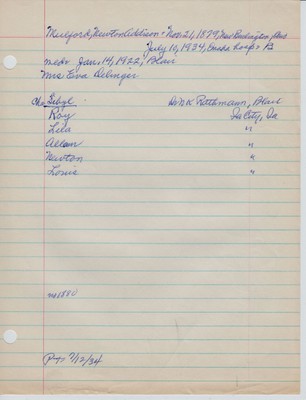 Mulford, Newton Addison - Nov. 21, 1879, New Burlington, Ohio
July 10, 1934, Omaha Hosp. B
md. Jan. 14, 1922, Blair
Mrs. Eva Delinger
Ch. Sibyl - Dr. N K Rathmann, Blair
Roy Ia City, Ia
Lila "
Allen "
Newton "
Louis "
P-T 7/12/34